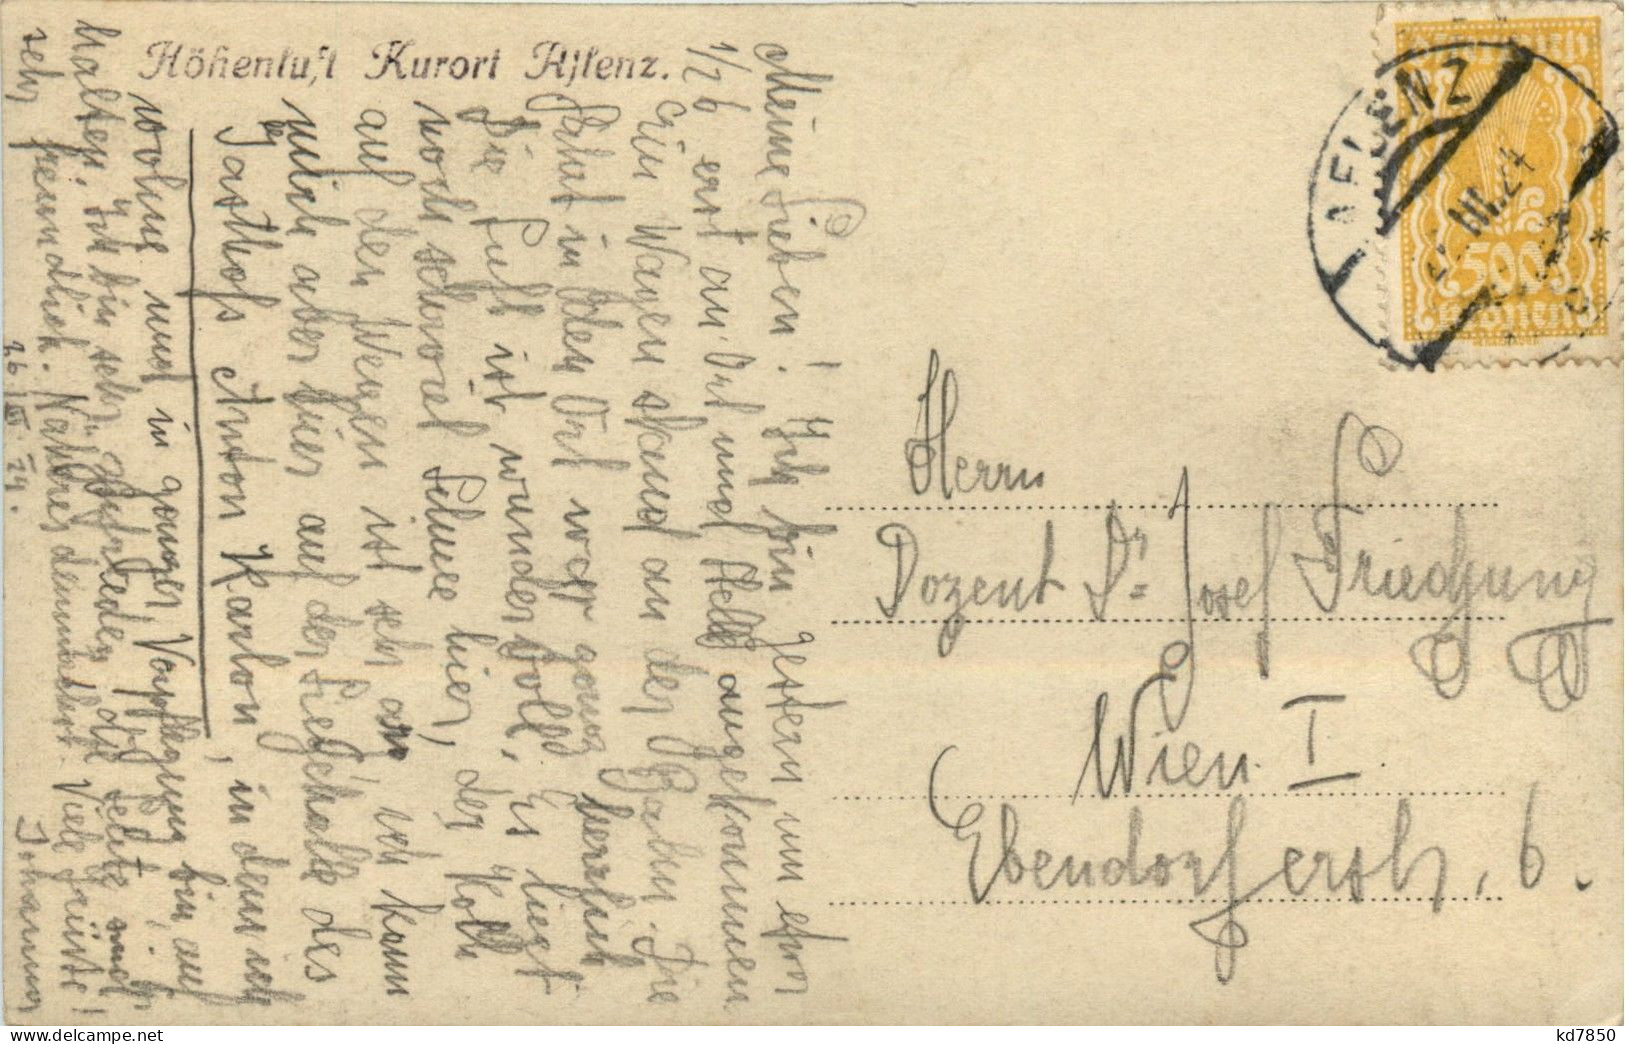 Höhenluft Kurort Aflenz.
Meine Lieben! Ich bin gestern um
1/2 6 erst an Ort und angekommen
Ein Wagen stand an der Bahn. Die
Fahrt in den Ort war ganz herrlich
Die Luft ist wundervoll. Es liegt
noch schrecklich viel Schnee hier, der Koth
auf den Wegen ist sehr arg, ich kann
mich aber hier auf der Liegehalle des
Gasthofs Anton Karlon, in dem ich
wohne und in ganzer Verpflegung bin auf
halten. Ich bin sehr zufrieden, die Leute sind
sehr freundlich. Nähres demnächst. Viele Grüsse!
26./III. 24.
Johanna
AFLENZ
III.24
500
KRONEN
Herrn
Dozent Dr. Josef Friedjung
Wien I
Ebendorferstr. 6.
kd7850